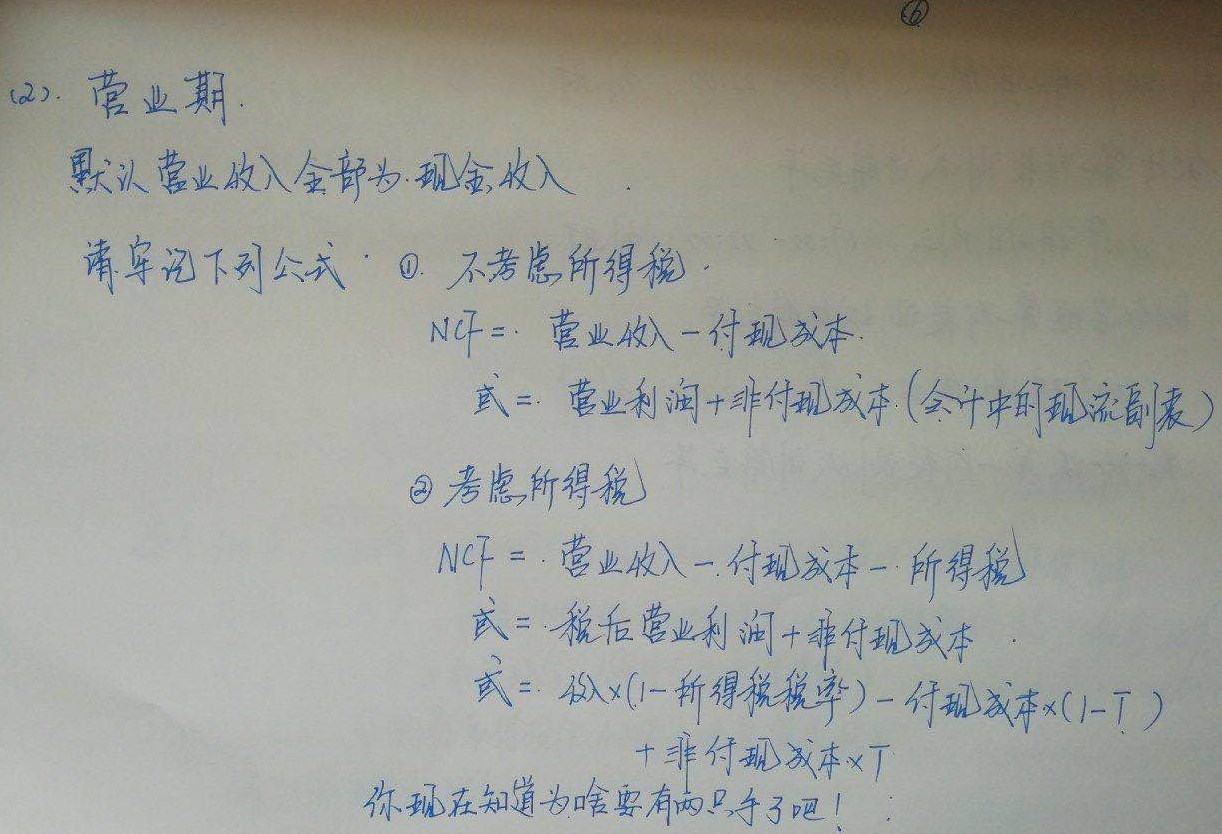 ⑥
(2). 营业期.
默认营业收入全部为现金收入.
请牢记下列公式. ①. 不考虑所得税.
NCF = 营业收入 - 付现成本.
或 = 营业利润 + 非付现成本. (会计中的现流副表)
② 考虑所得税
NCF = 营业收入 - 付现成本 - 所得税
或 = 税后营业利润 + 非付现成本.
或 = 收入×(1-所得税税率) - 付现成本×(1-T)
+ 非付现成本×T
你现在知道为啥要有两只手了吧!